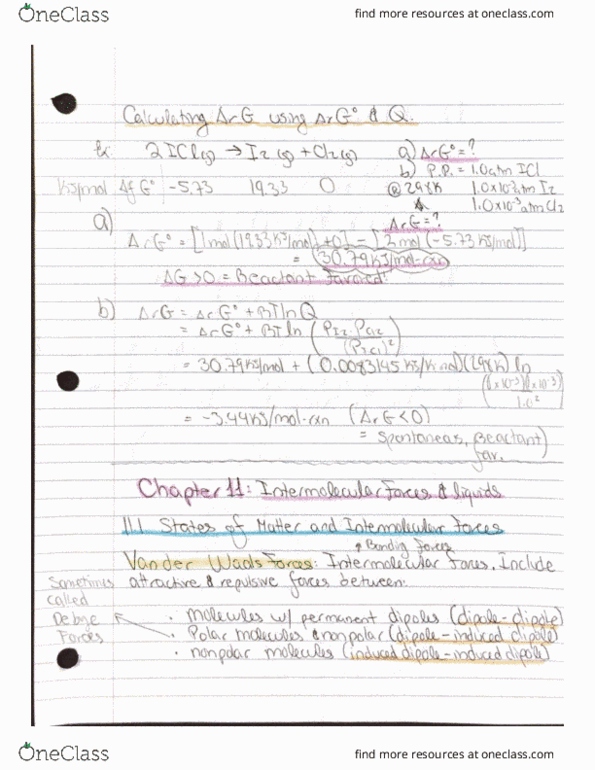 OneClass
find more resources at oneclass.com
Calculating ΔrG using ΔrG° & Q.
Ex: 2ICl(g) → I2(g) + Cl2(g) a) ΔrG° = ?
b) P.P. = 1.0atm ICl
KJ/mol ΔfG° -5.73 19.33 0 @298K 1.0x10-3atm I2
1.0x10-3atm Cl2
ΔrG = ?
a)
ΔrG° = [1mol(19.33KJ/mol)+0] - [2mol(-5.73KJ/mol)]
= 30.79KJ/mol-rxn
ΔG>0 = Reactant favored!
b) ΔrG = ΔrG° + RT ln Q
= ΔrG° + RT ln (PI2 · PCl2 / (PICl)2)
= 30.79KJ/mol + (0.0083145 KJ/K·mol)(298K) ln
((1x10-3)(1x10-3) / 1.0²)
= -3.44KJ/mol-rxn (ΔrG<0)
= Spontaneas, Reactant
fav.
Chapter 11: Intermolecular Forces & liquids
11.1 States of Matter and Intermolecular Forces
Bonding Forces
Van der Waals Forces: Intermolecular Forces, Include
attractive & repulsive forces between:
Sometimes
called
Debye
Forces
· molecules w/ permanent dipoles (dipole-dipole)
· Polar molecules & nonpolar (dipole-induced dipole)
· nonpolar molecules (induced dipole-induced dipole)
OneClass
find more resources at oneclass.com